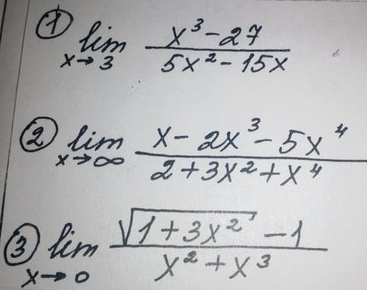 ① lim x→3 (x³-27)/(5x²-15x)
② lim x→∞ (x-2x³-5x⁴)/(2+3x²+x⁴)
③ lim x→0 (√(1+3x²)-1)/(x²+x³)